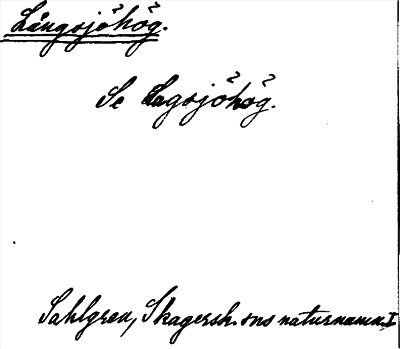 Långsjöhög.
Se Lagsjöhög.
Sahlgren, Skagersh. sns naturnamn. I